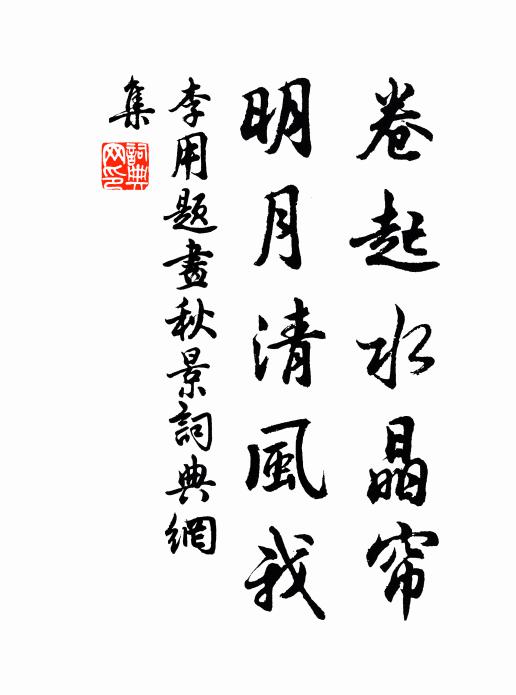 卷起水晶帘
明月清風我
李用題畫秋景詞典網
集
詞典
网印